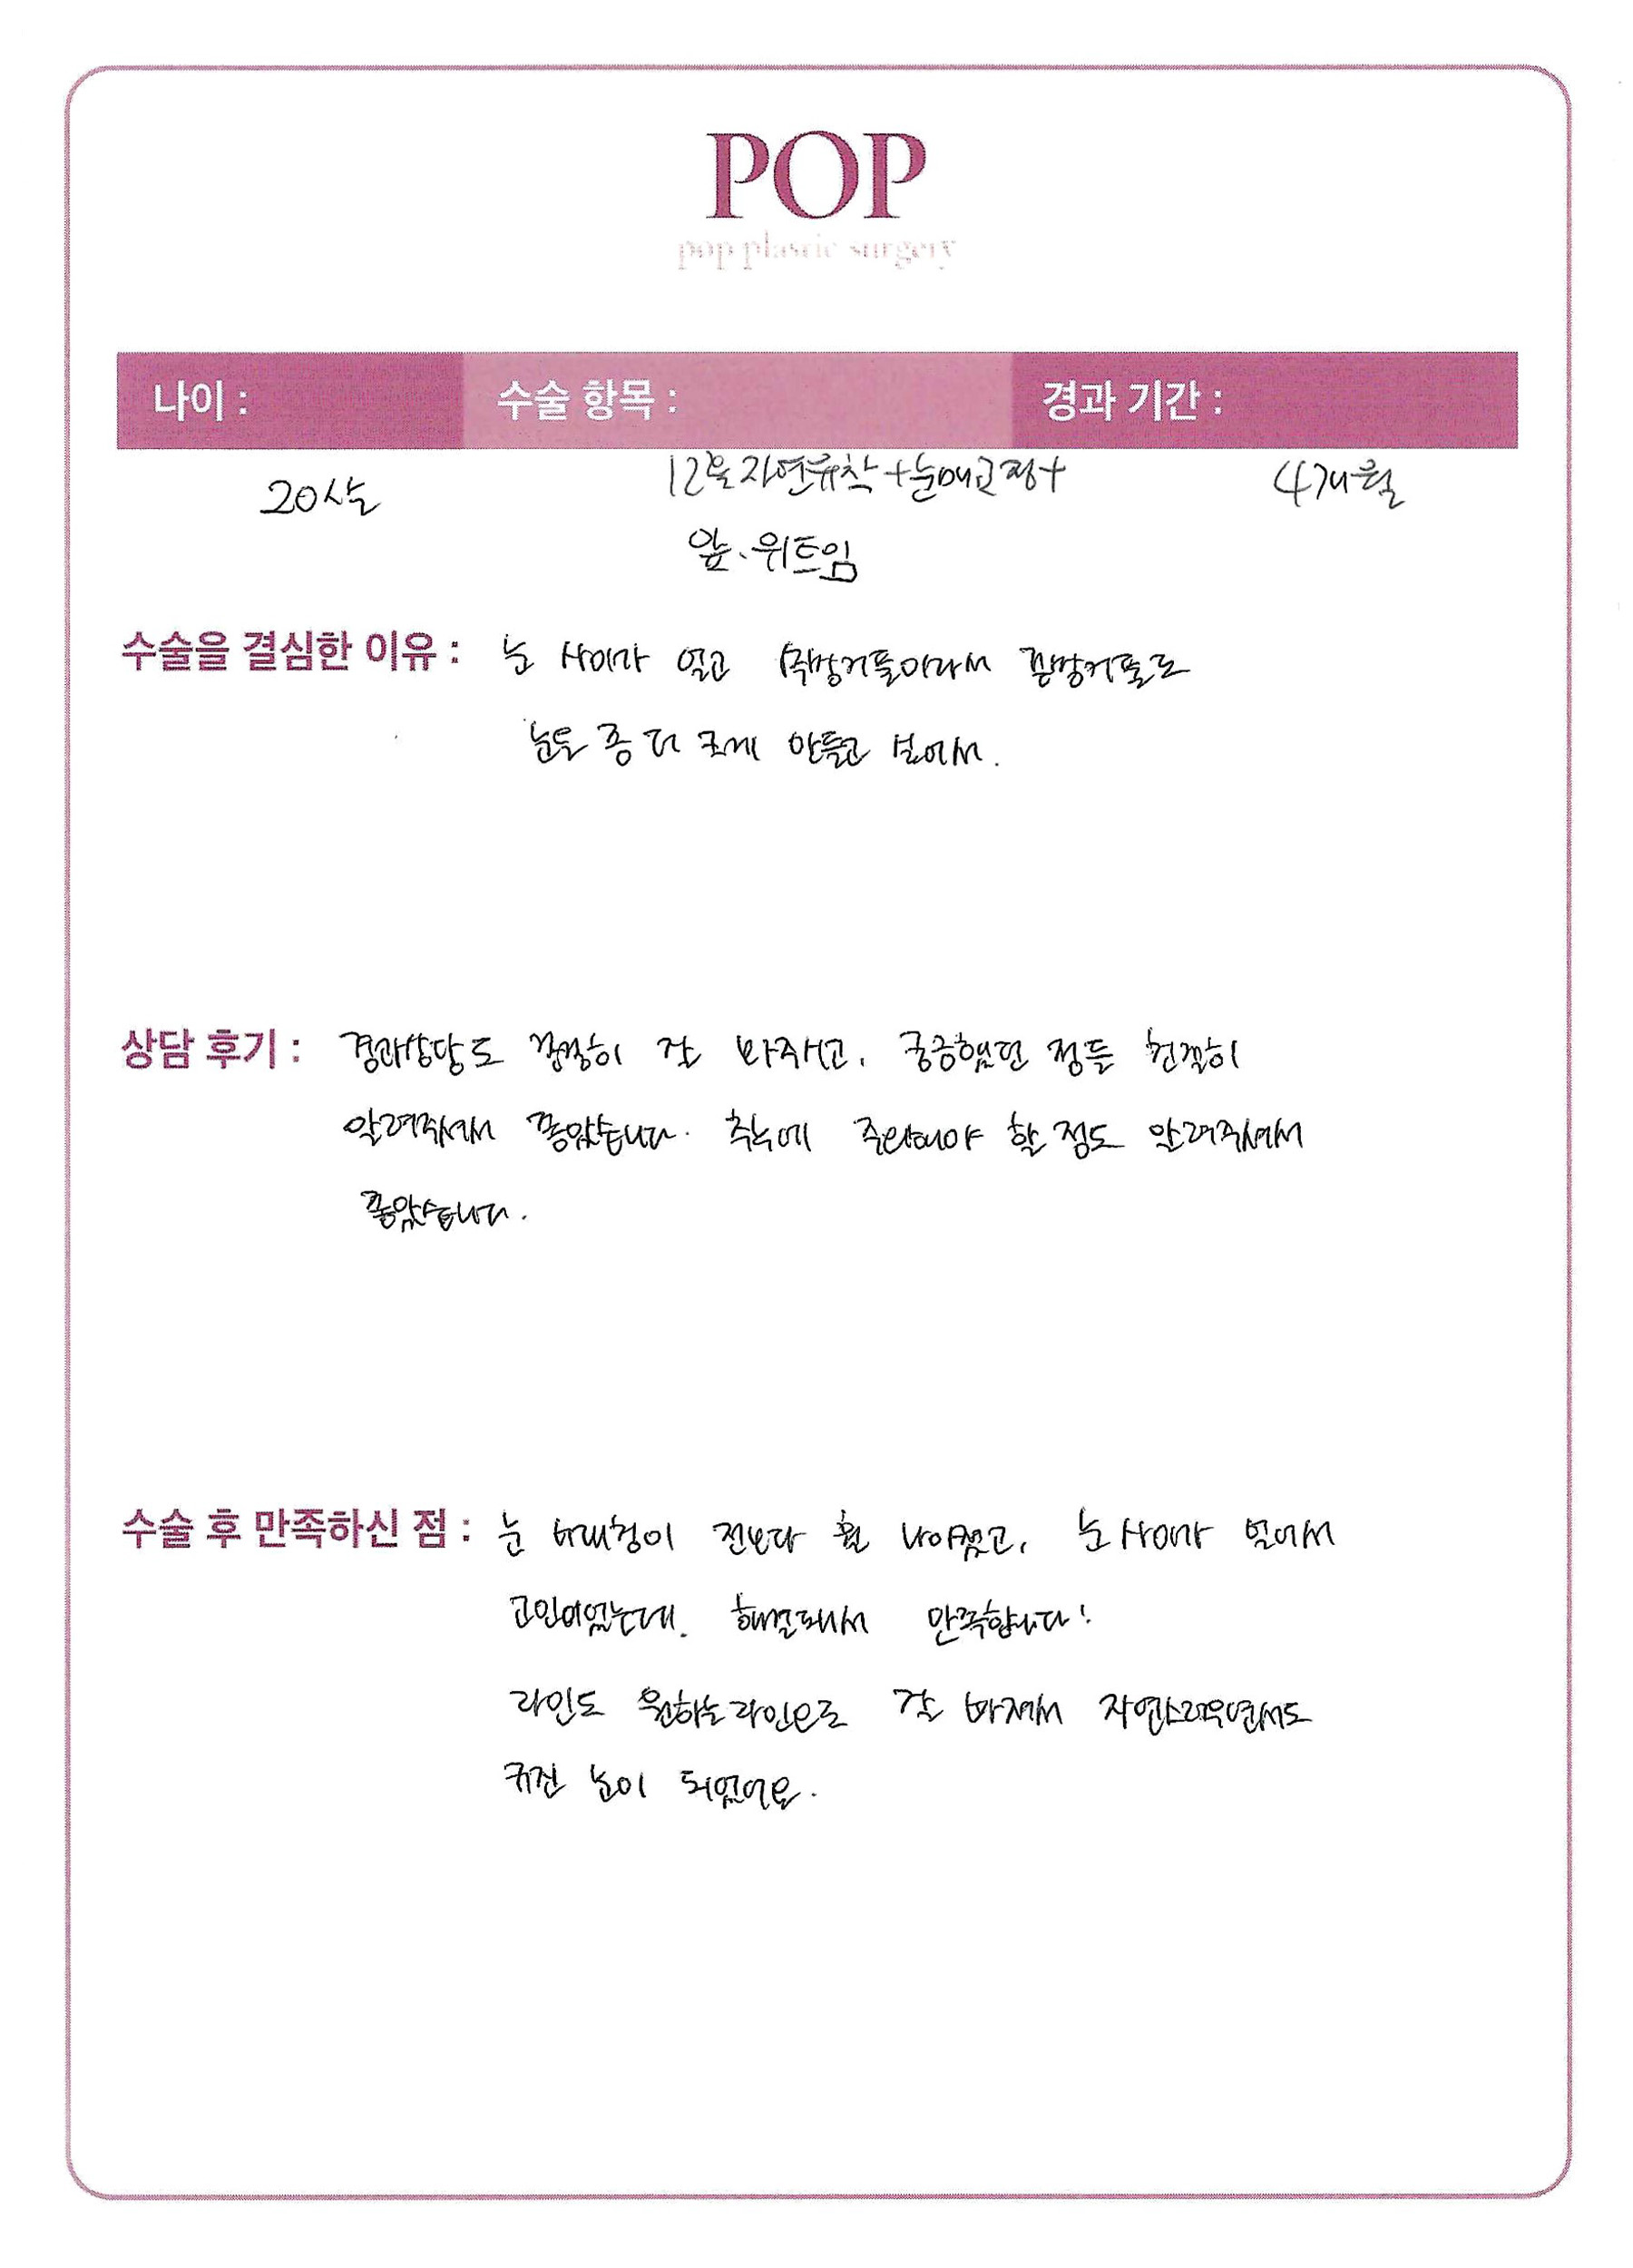 POP
pop plastic surgery
나이 : 수술 항목 : 경과 기간 :
20살 12올자연유착+눈매교정+ 4개월
앞·위트임
수술을 결심한 이유 : 눈 사이가 멀고 속쌍거풀이라서 겉쌍거풀로
눈을 좀 더 크게 만들고 싶어서.
상담 후기 : 경과상담도 꼼꼼히 잘 봐주시고, 궁금했던 점들 친절히
알려주셔서 좋았습니다. 추후에 주의해야 할 점도 알려주셔서
좋았습니다.
수술 후 만족하신 점 : 눈 비대칭이 전보다 훨 나아졌고, 눈 사이가 멀어서
고민이었는데, 해결돼서 만족합니다!
라인도 원하는 라인으로 잘 빠져서 자연스러우면서도
커진 눈이 되었어요.